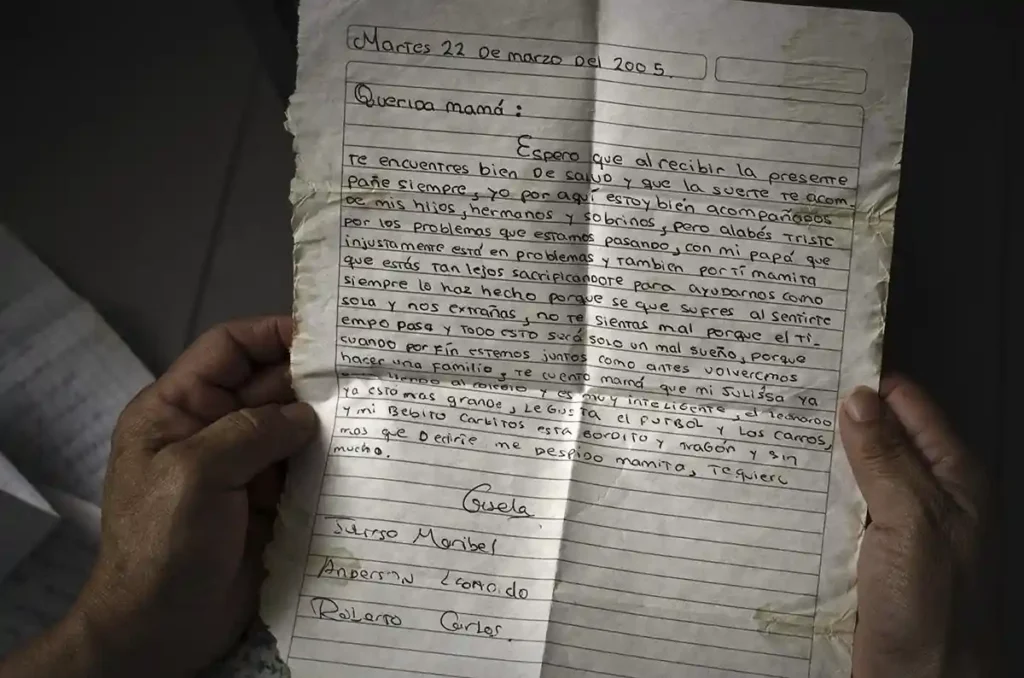 Martes 22 De marzo Del 2005.
Querida mamá:
Espero que al recibir la presente
te encuentres bien De salud y que la suerte te acom-
pañe siempre, yo por aquí estoy bién acompañados
De mis hijos, hermanos y sobrinos, pero alabés triste
por los problemas que estamos pasando, con mi papá que
injustamente está en problemas y tambien por ti mamita
que estás tan lejos sacrificandote para ayudarnos como
siempre lo haz hecho porque se que sufres al sentirte
sola y nos extrañas, no te sientas mal porque el ti-
empo pasa y todo esto será solo un mal sueño, porque
cuando por fín estemos juntos como antes volveremos
hacer una familio, te cuento mamá que mi Julissa ya
al colegio y es muy inteligente, el leonardo
ya esto mas grande, le gusta el futbol y los carros,
y mi Bebito Carlitos esta gordito y tragón y sin
mas que Decirle me Despido mamita, te quiero
mucho.
Gisela
Maribel
Anderson Leonardo
Roberto Carlos.